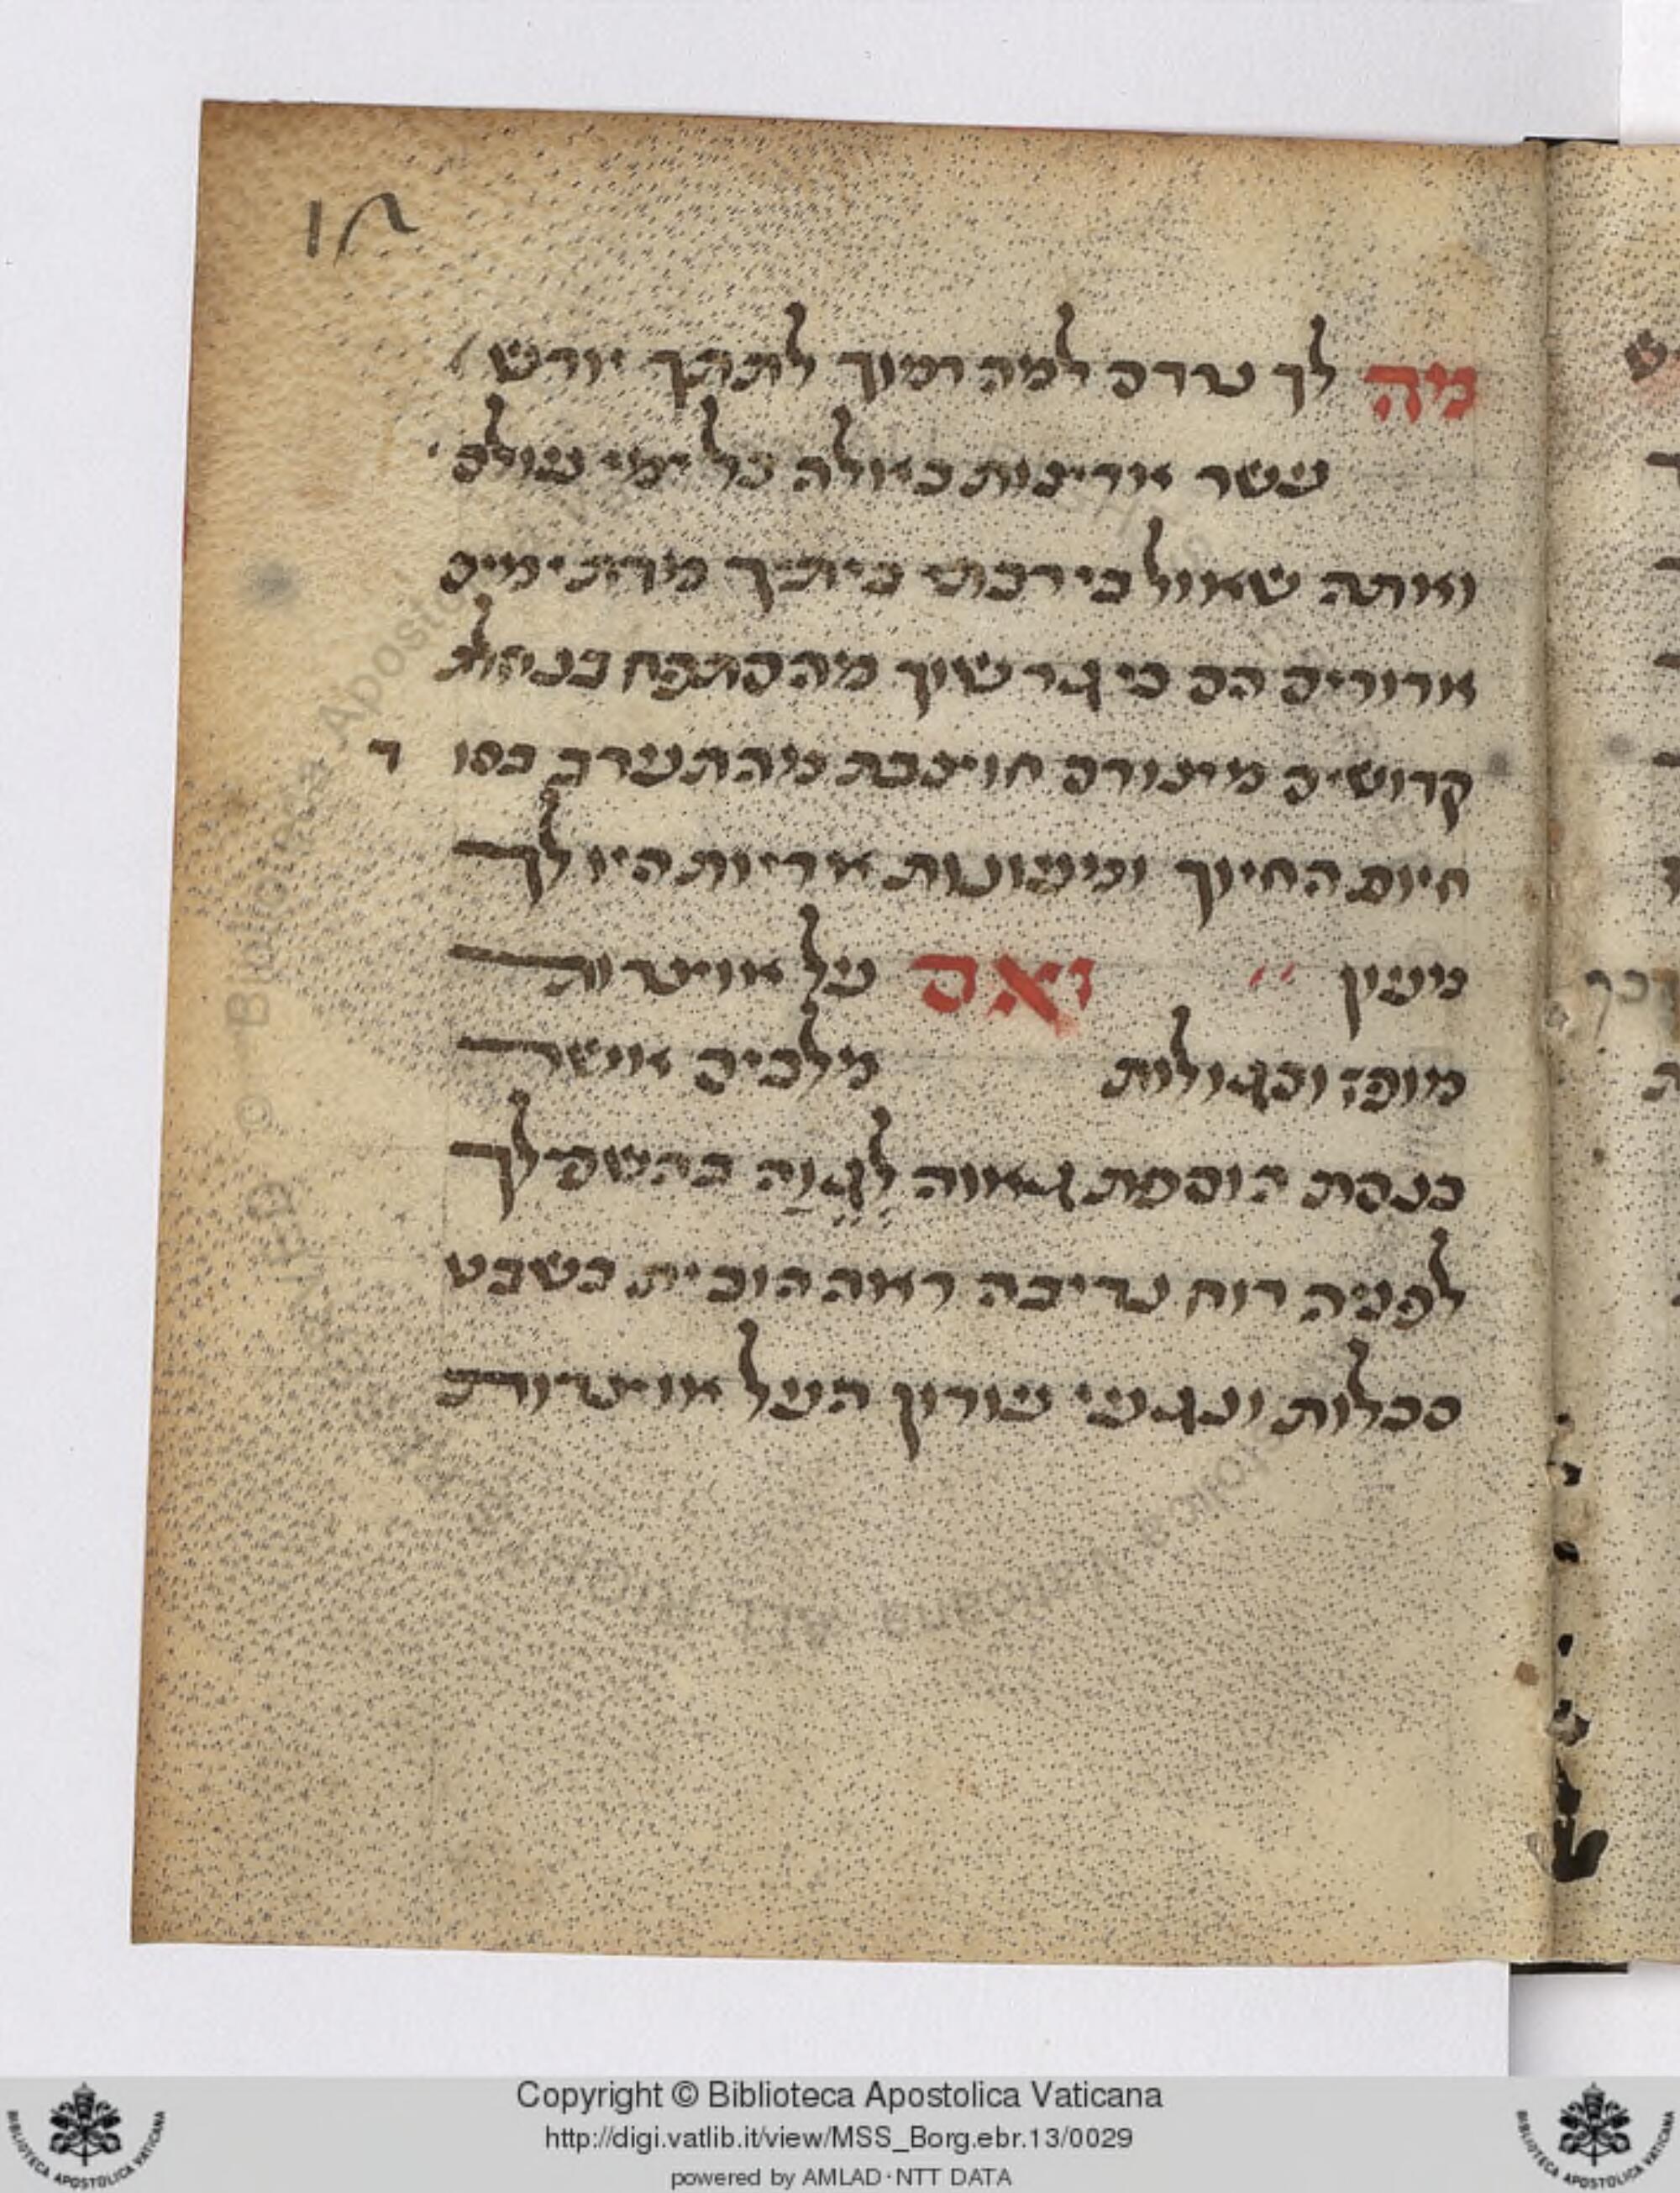 מה לך נרדם למה דמוך לתתך יורש
עשר ארינות גאולה כל ימי עולם
ואתה שאול כי רבת ביתך מרת ימים
ארורים הם כי גרשוך מהסתפח בנחלת
קדושים מינורם חוינבת מהתערב בסוד
חיות החיוך ומעונות אריות היו לך
מעון ואם על אוצרות
מופז וסגולות מלכים אשר
כנסת הוספת גאוה לגוה בהשפילך
לפניה רוח נדיבה ראה הוכית בשבט
סכלות ונגעי עורון העל אוצרות
Copyright © Biblioteca Apostolica Vaticana
http://digi.vatlib.it/view/MSS_Borg.ebr.13/0029
powered by AMLAD·NTT DATA